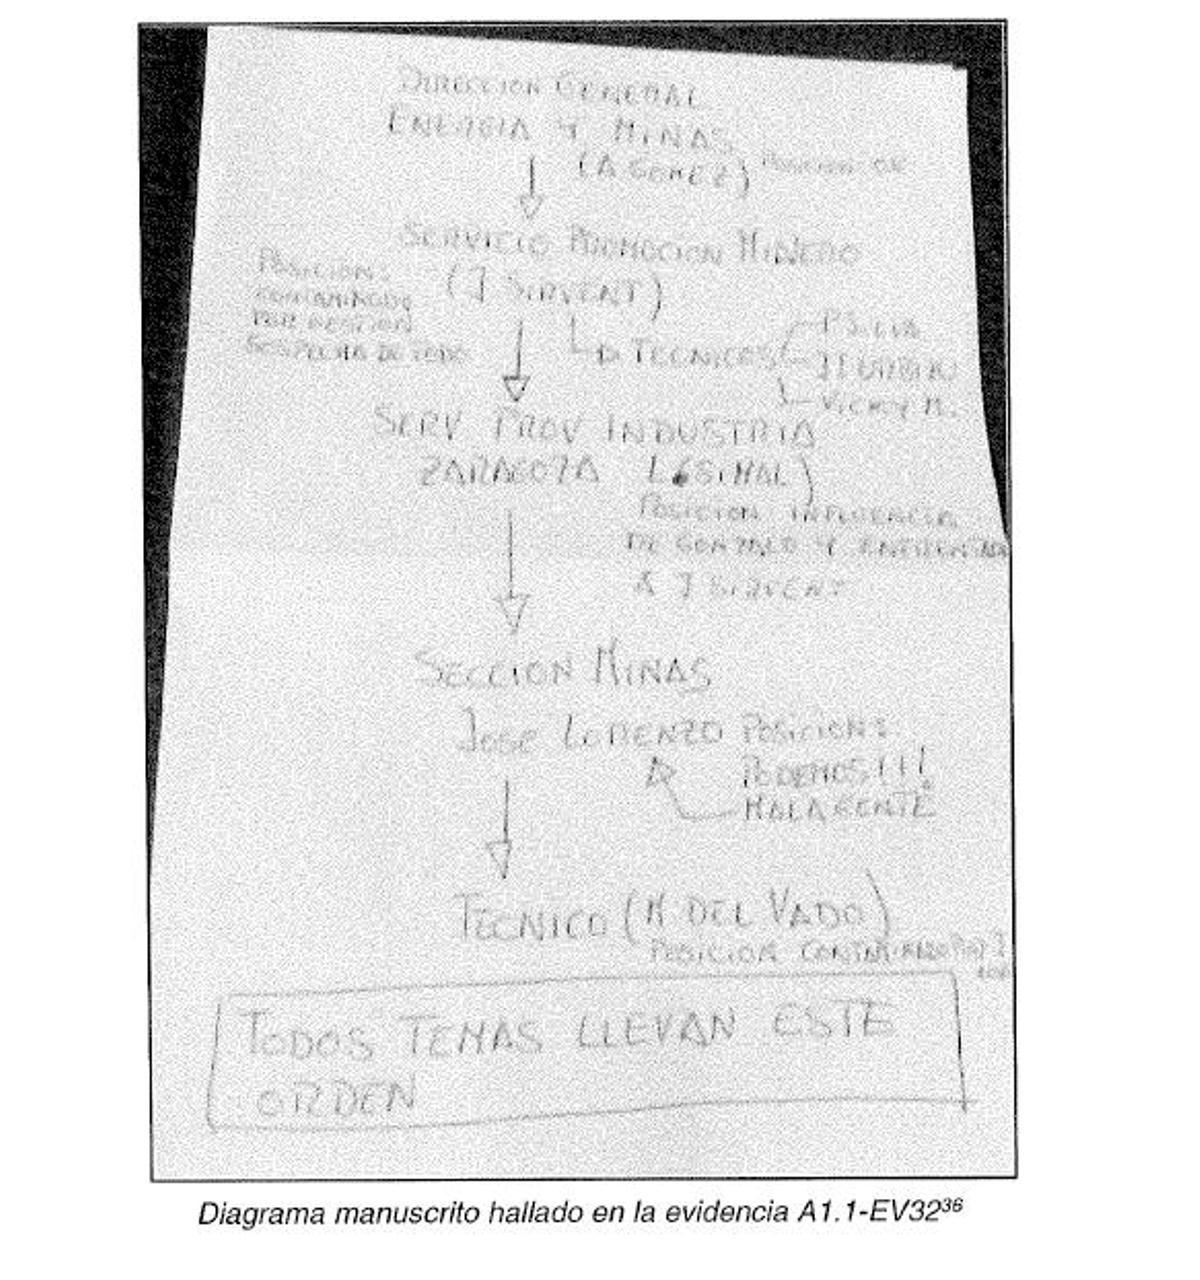 DIRECCION GENERAL
ENERGIA Y MINAS
(A GOMEZ) POSICION OK
SERVICIO PROMOCION MINERO
(J SIRVENT)
POSICION:
CONTAMINADO
POR GESTION
SOSPECHA DE TODO
TECNICOS
VICKY M.
SERV PROV INDUSTRIA
ZARAGOZA L SIMAL)
POSICION INFLUENCIA
DE GONZALO Y
A J SIRVENT
SECCION MINAS
JOSE LORENZO POSICION:
PODEMOS (!!
MALA GENTE
TECNICO (M DEL VADO)
POSICION
TODOS TEMAS LLEVAN ESTE
ORDEN
Diagrama manuscrito hallado en la evidencia A1.1-EV32³⁶